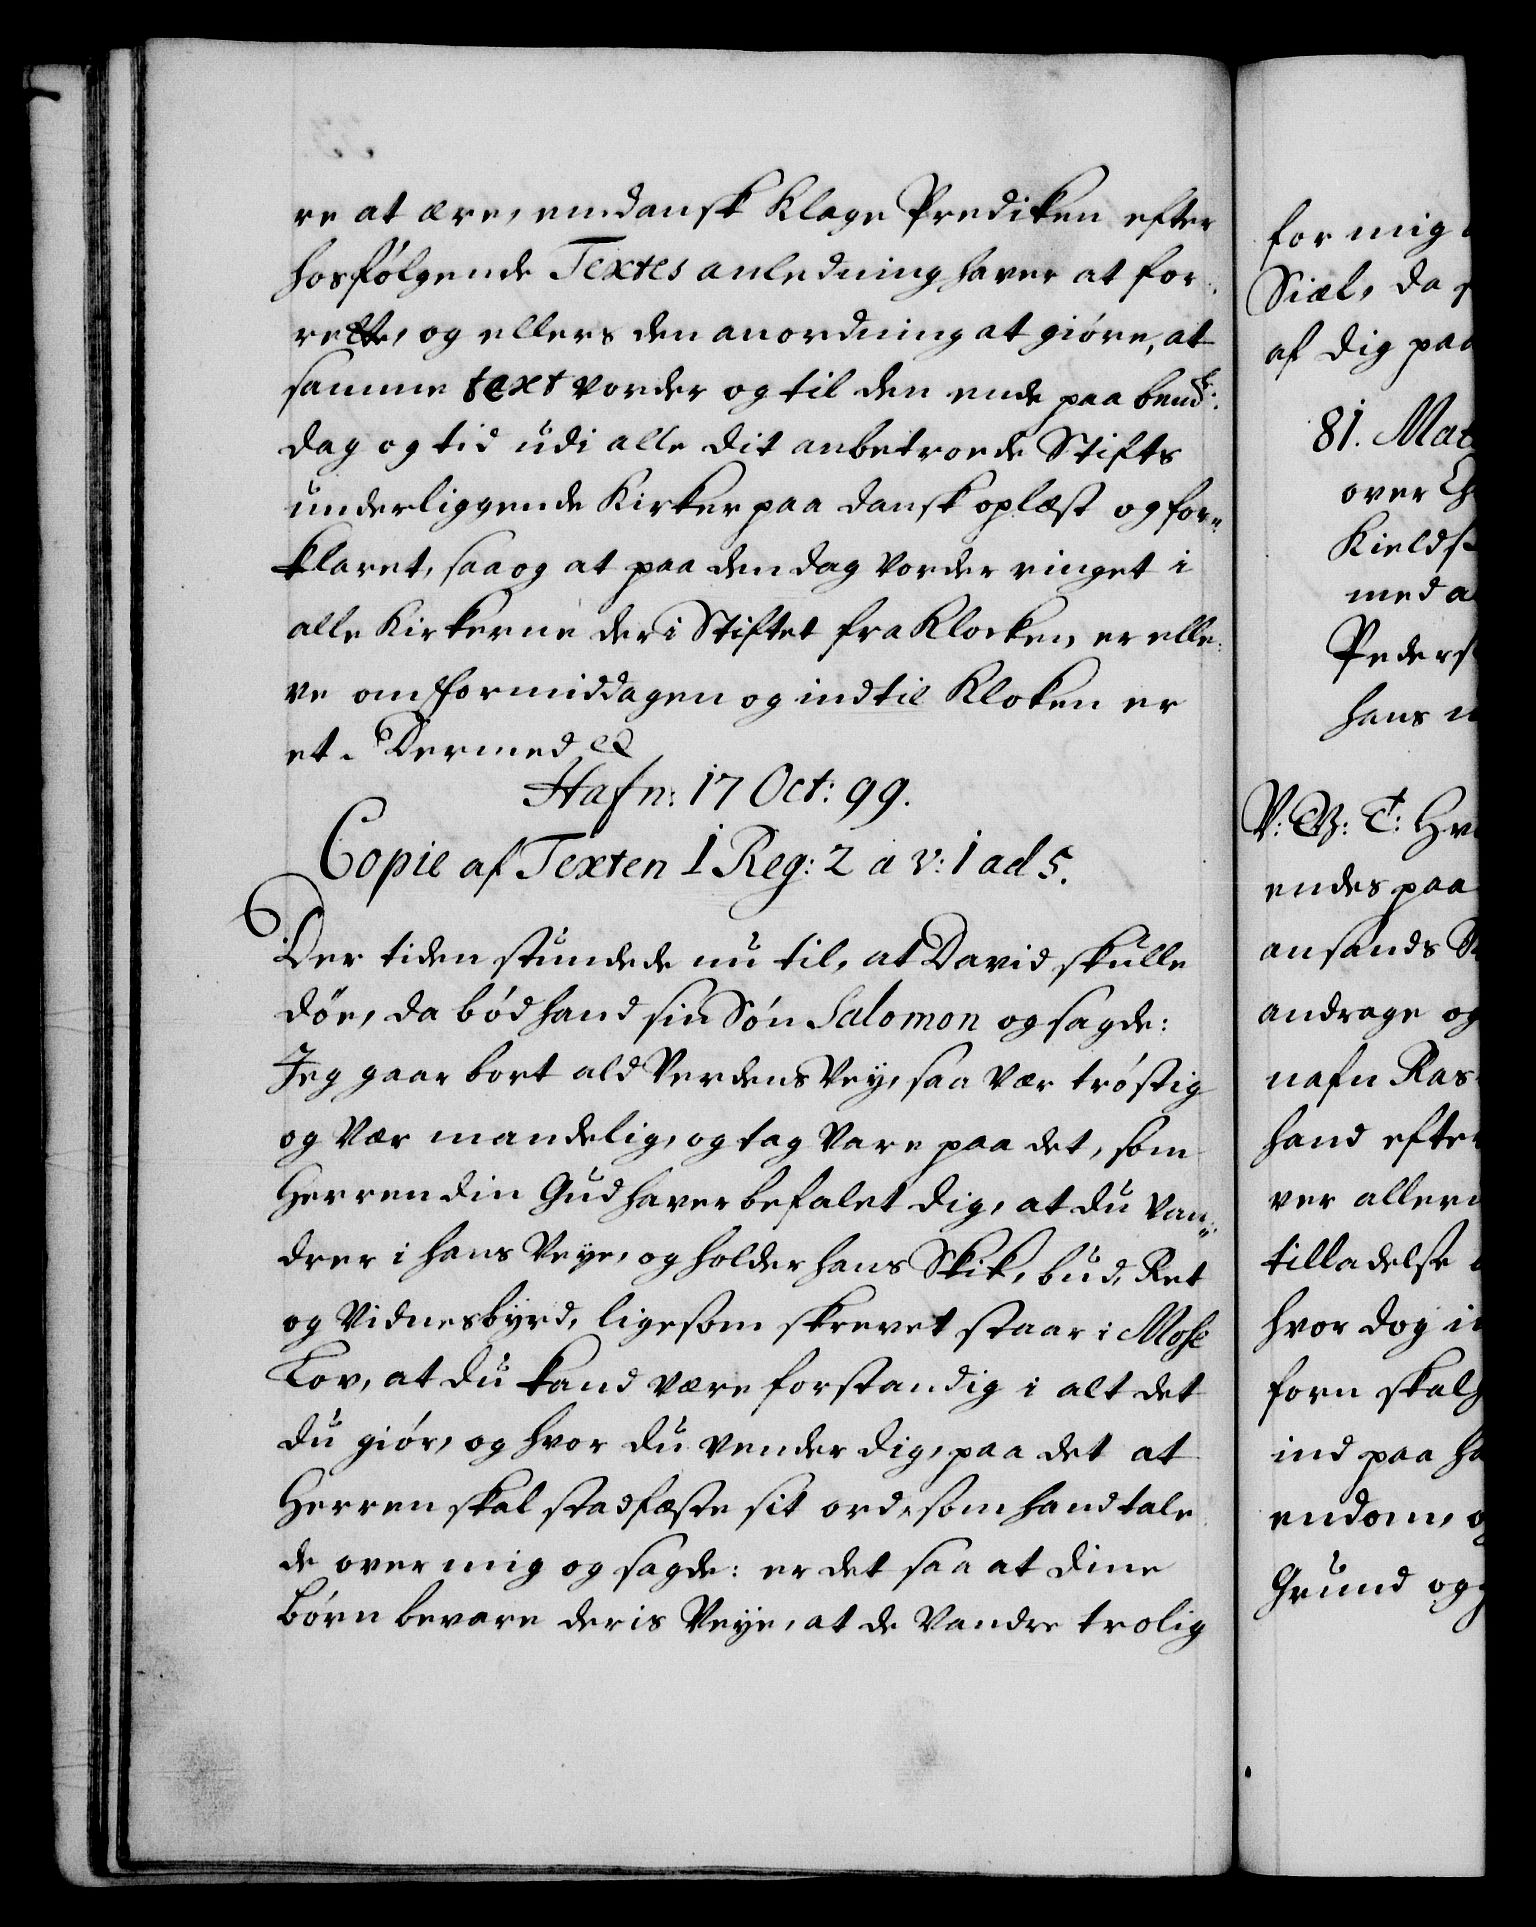 re at ære, en dansk Klage Prediken efter
hosfølgende Textes anledning haver at for-
rette, og ellers den anordning at giøre, at
samme text vorder og til den ende paa bemte:
dag og tid udi alle dit anbetroede Stifts
underliggende Kirker paa dansk oplæst og for-
klaret, saa og at paa den dag vorder ringet i
alle Kirkerne der i Stiftet fra Klocken er elle-
ve om formiddagen og indtil Kloken er
et. Dermed etc
Hafn: 17 Oct: 99.
Copie af Texten 1 Reg: 2 a v: 1 ad 5.
Der tiden stundede nu til, at David skulle
døe, da bød hand sin Søn Salomon og sagde:
Jeg gaar bort ald Verdens Vey, saa vær trøstig
og vær mandelig, og tag vare paa det, som
Herren din Gud haver befalet dig, at du van-
drer i hans Veye, og holder hans Skik, bud, Ret
og Vidnesbyrd, ligesom skrevet staar i Mose
Lov, at du kand være forstandig i alt det
du giør, og hvor du vender dig, paa det at
Herren skal stadfæste sit ord, som hand tale
de over mig og sagde: er det saa at dine
børn bevare deris Veye, at de vandre trolig
for mig
Siæl, da
af dig paa
81. Mat
over
Kields
med
Peders
hans
V: G: T:
endes paa
ansands
andrage og
nafn Ras
hand efter
ver allern
tilladelse
hvor dog
forn skal
ind paa
endom,
Grund og